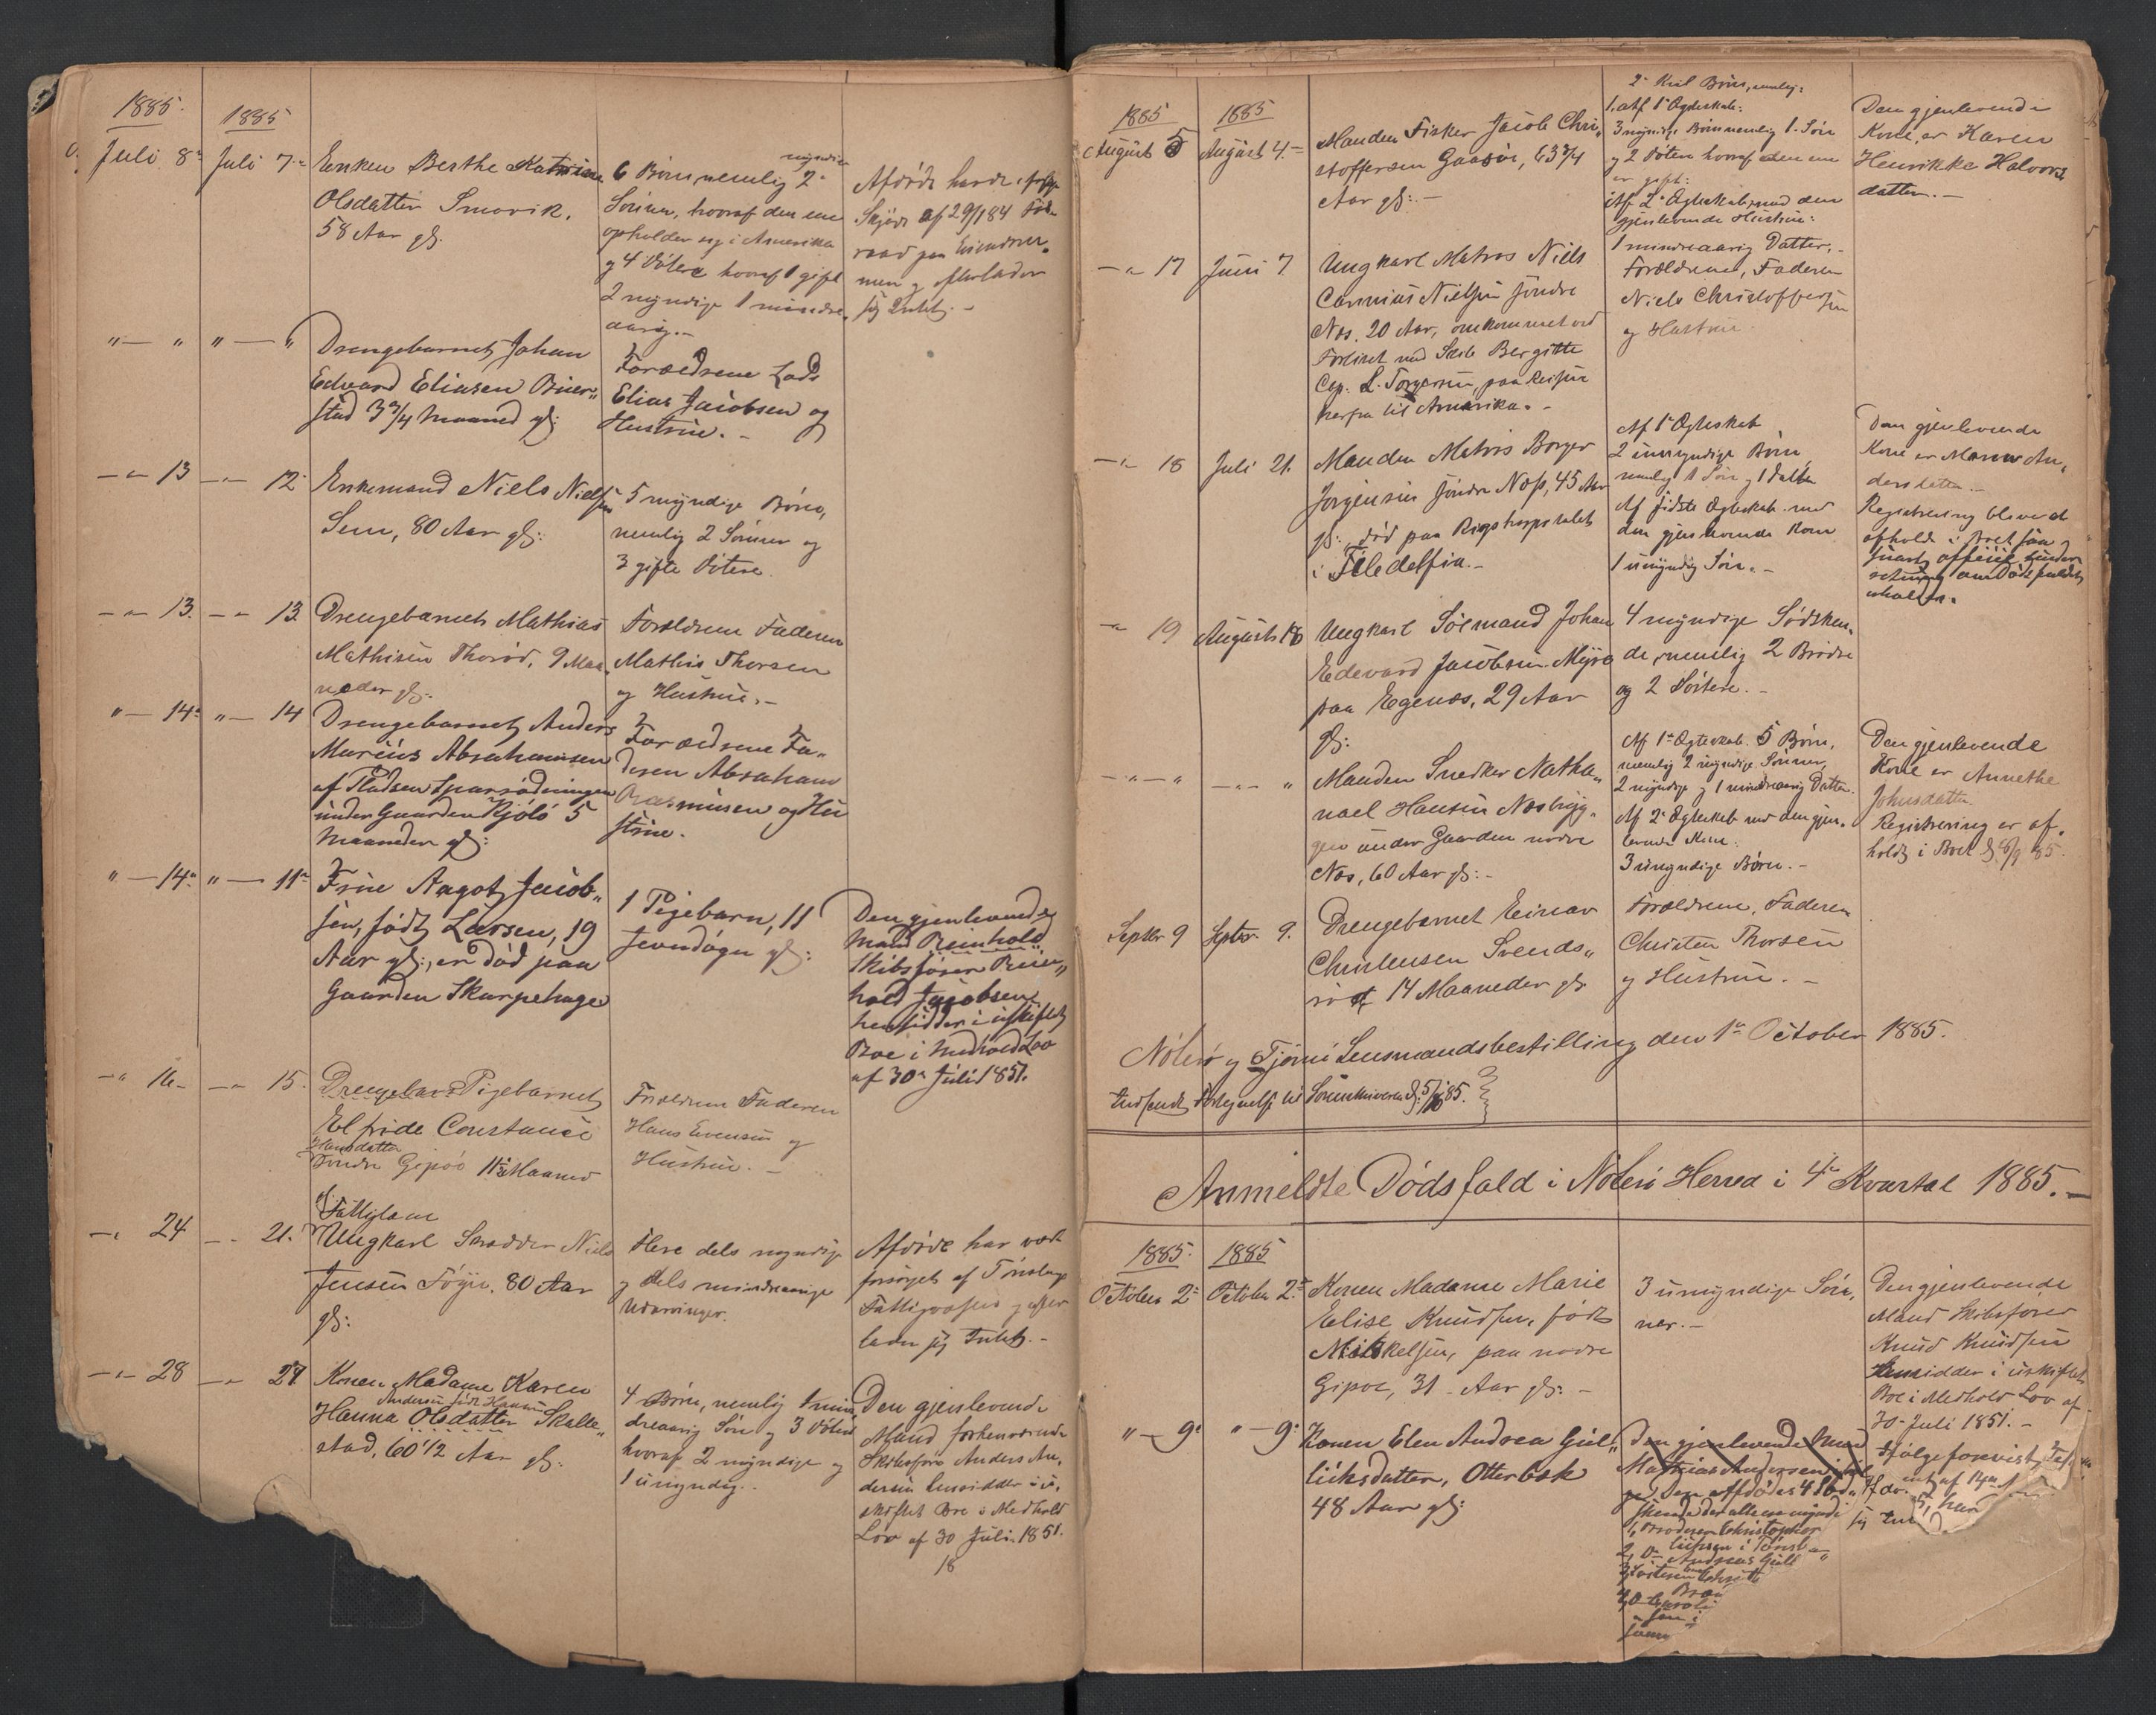 1885.
1885
Juli 8de
Juli 7de
Enken Berthe Katrine
Olsdatter Smørvik,
58 Aar gl.
6 Børn, nemlig 2 myndige
Sønner, hvoraf den ene
opholder sig i Amerika
og 4 Døtre hvoraf 1 gift
2 myndige 1 mindre-
aarig.-
Afdøde havde ifølge
Skjøde af 29/1 84 Føde-
raad paa Eiendom-
men og efterlader
sig Intet.-
"— " "— "
Drengebarnet Johan
Edvard Eliasen Buer-
stad 3 3/4 Maaned gl:
Forældrene Lods
Elias Jacobsen og
Hustrue.-
-"- 13
-"- 12
Enkemand Niels Nielsen
Sem, 80 Aar gl:
5 myndige Børn,
nemlig 2 Sønner og
3 gifte Døtere.
-"- 13.
-"- 13
Drengebarnet Mathias
Mathisen Thorød, 9 Maa-
neder gl:
Forældrene Faderen
Mathis Thorsen
og Hustrue.-
"— 14de
"— 14
Drengebarnet Anders
Marius Abrahamsen
af Pladsen Sparrødningen
under Gaarden Kjølø 5
Maaneder gl:
Forældrene Fa-
deren Abraham
Rasmusen og Hu
strue.
"— 14de
"— 11te
Frue Aagot Jacob-
sen, født Larsen, 19
Aar gl:, er død paa
Gaarden Skarpehage
1 Pigebarn, 11
Jevndøgn gl:
Den gjenlevende
Mand Reinhold
Skibsfører Rein-
hold Jacobsen
hensidder i uskiftet
Boe i Medhold Lov
af 30te Juli 1851.
-"- 16
-"- 15.
Drengebar Pigebarnet
Elfride Constance
Hansdatter
Søndre Gipøe 11 1/2 Maaned
gl:
Forældrene Faderen
Hans Evensen og
Hustrue.-
-"- 24
-"- 21.
Fattiglem
Ungkarl Skrædder Niels
Jensen Føyn, 80 Aar
gl:
Flere dels myndige
og dels mindreaarige
Udarvinger.
Afdøde har vært
forsørget af Tønsbergs
Fattigvæsen og efter
lader sig Intet.-
-"- 28
-"- 27
Konen Madame Karen
Andersen født Hansen
Hanna Olsdatter Skalle-
stad, 60 1/2 Aar gl:
4 Børn, nemlig 1 min
dreaarig Søn og 3 Døtre
hvoraf 2 myndige og
1 umyndig.
Den gjenlevende
Mand forhenværende
Skibsfører Anders An-
dersen hensidder i u-
skiftet Boe i Medhold
Lov af 30 Juli 1851.
18
1885
1885
August 5
August 4.
Manden Fisker Jacob Chri-
stoffersen Gaasør, 63 3/4
Aar gl:-
2 Kul Børn, nemlig:
1. Af 1ste Ægteskab:
3 myndige Børn nemlig 1 Søn
og 2 Døtere hvoraf den ene
er gift:
Af 2det Ægteskab med den
gjenlevende Hustrue:
1 mindreaarig Datter.-
Den gjenlevende
Kone er Karen
Henrikke Halvors
datter.-
-"- 17
Juni 7.
Ungkarl Matros Niels
Carinius Nielsen søndre
Næs, 20 Aar, omkommet ved
Forliset med Skib Bergitte
Cap. L. Torgersen, paa Reisen
herfra til Amerika.-
Forældrene, Faderen
Niels Christoffersen
og Hustrue
-"- 18
Juli 21.
Manden Matros Borger
Jørgensen søndre Næs, 45 Aar
gl:, død paa Rigshospitalet
i Filedelfia.-
Af 1ste Ægteskab
2 umyndige Børn
nemlig 1 Søn og 1 Datter
Af sidste Ægteskab med
den gjenlevende Kone
1 umyndig Søn.-
Den gjenlevende
Kone er Maren An-
dersdatter.-
Registrering bliver at
afholde i Boet saa
snart officiel under
retning om Dødsfaldet
erholdes.
-"- 19
August 18
Ungkarl Sømand Johan
Edevard Jacobsen Myre
paa Egenæs, 29 Aar
gl:
4 myndige Sødsken-
de, nemlig 2 Brødre
og 2 Søstere.-
-"- "
-"- "
Manden Snedker Natha-
nael Hansen Næsbryg-
gen under Gaarden nordre
Næs, 60 Aar gl:-
Af 1ste Ægteskab. 5 Børn,
nemlig 2 myndige Sønner,
2 myndige og 1 mindreaarig Datter.
Af 2det Ægteskab med den gjen-
levende Kone:
3 umyndige Børn.-
Den gjenlevende
Kone er Annethe
Johnsdatter.
Registrering er af-
holdt i Boet d: 6/9 85.
Septbr 9
Septbr 9.
Drengebarnet Einar
Christensen Svends-
rød 14 Maaneder gl:
Forældrene, Faderen
Christen Thorsen
og Hustrue.-
Nøterø og Tjømø Lensmandsbestilling den 1ste October 1885.
Indsendt Fortegnelse til Sorenskriveren d: 5/10 85.
Anmeldte Dødsfald i Nøterø Herred i 4de Kvartal 1885.-
1885.
1885
October 2de
October 2de
Konen Madame Marie
Elise Knudsen, født
Mikkelsen, paa nordre
Gipøe, 31 Aar gl:-
3 umyndige Søn-
ner.-
Den gjenlevende
Mand Skibsfører
Knud Knudsen
hensidder i uskiftet
Boe i Medhold Lov af
30 Juli 1851.-
"— 9de
"— 9de
Konen Elen Andrea Gul-
liksdatter, Otterbæk
48 Aar gl:
Den gjenlevende Mand
Mathias Andersen
den afdødes 4 Sød-
skende der alle er myndige
1, Broderen Christopher
i Tønsberg
2, Do Andreas Gull
3, Søsteren
4, Do
Ifølge forevist Te
af